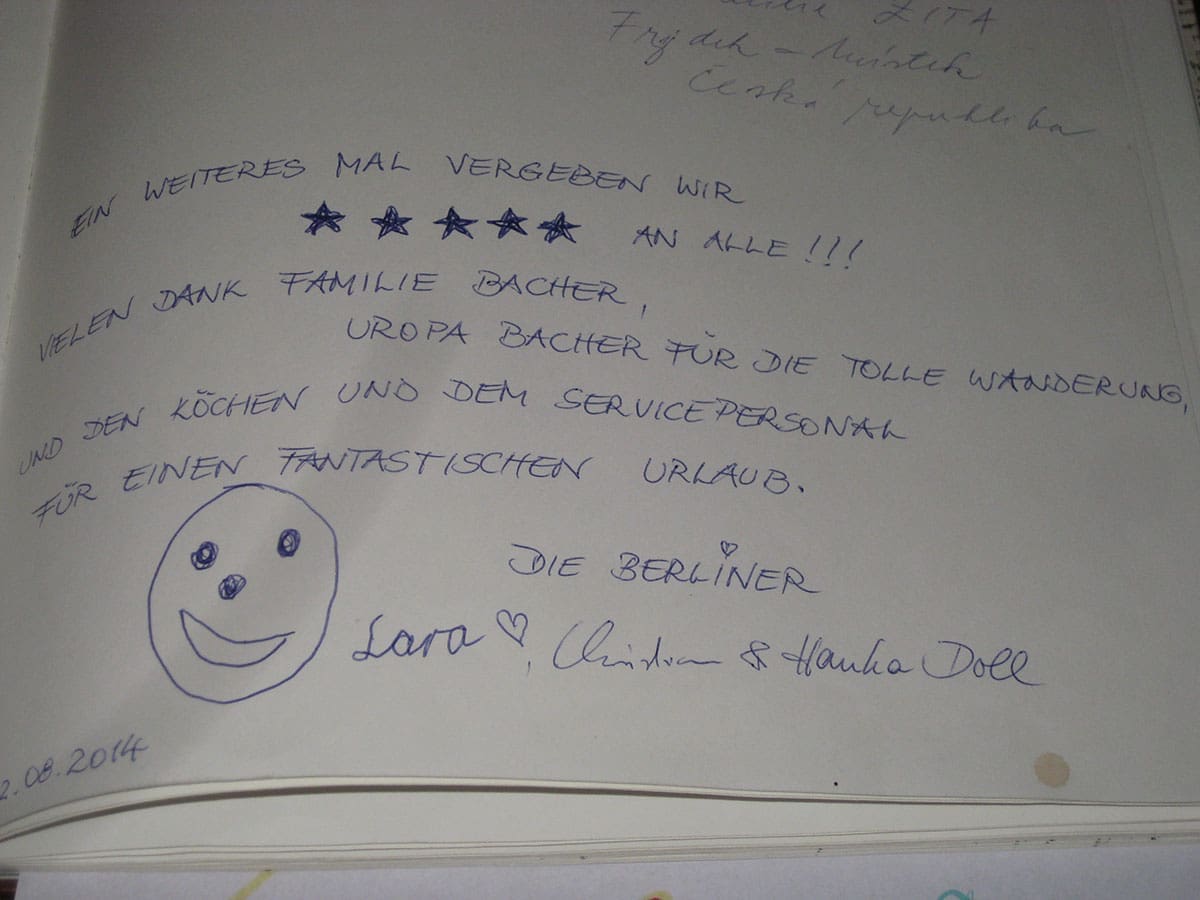 ZITA
Frýdek - Místek
Česká republika
EIN WEITERES MAL VERGEBEN WIR
★ ★ ★ ★ ★ AN ALLE!!!
VIELEN DANK FAMILIE BACHER,
UROPA BACHER FÜR DIE TOLLE WANDERUNG,
UND DEN KÖCHEN UND DEM SERVICEPERSONAL
FÜR EINEN FANTASTISCHEN URLAUB.
DIE BERLINER
Lara ♡, Christian & Hanka Doll
2.08.2014